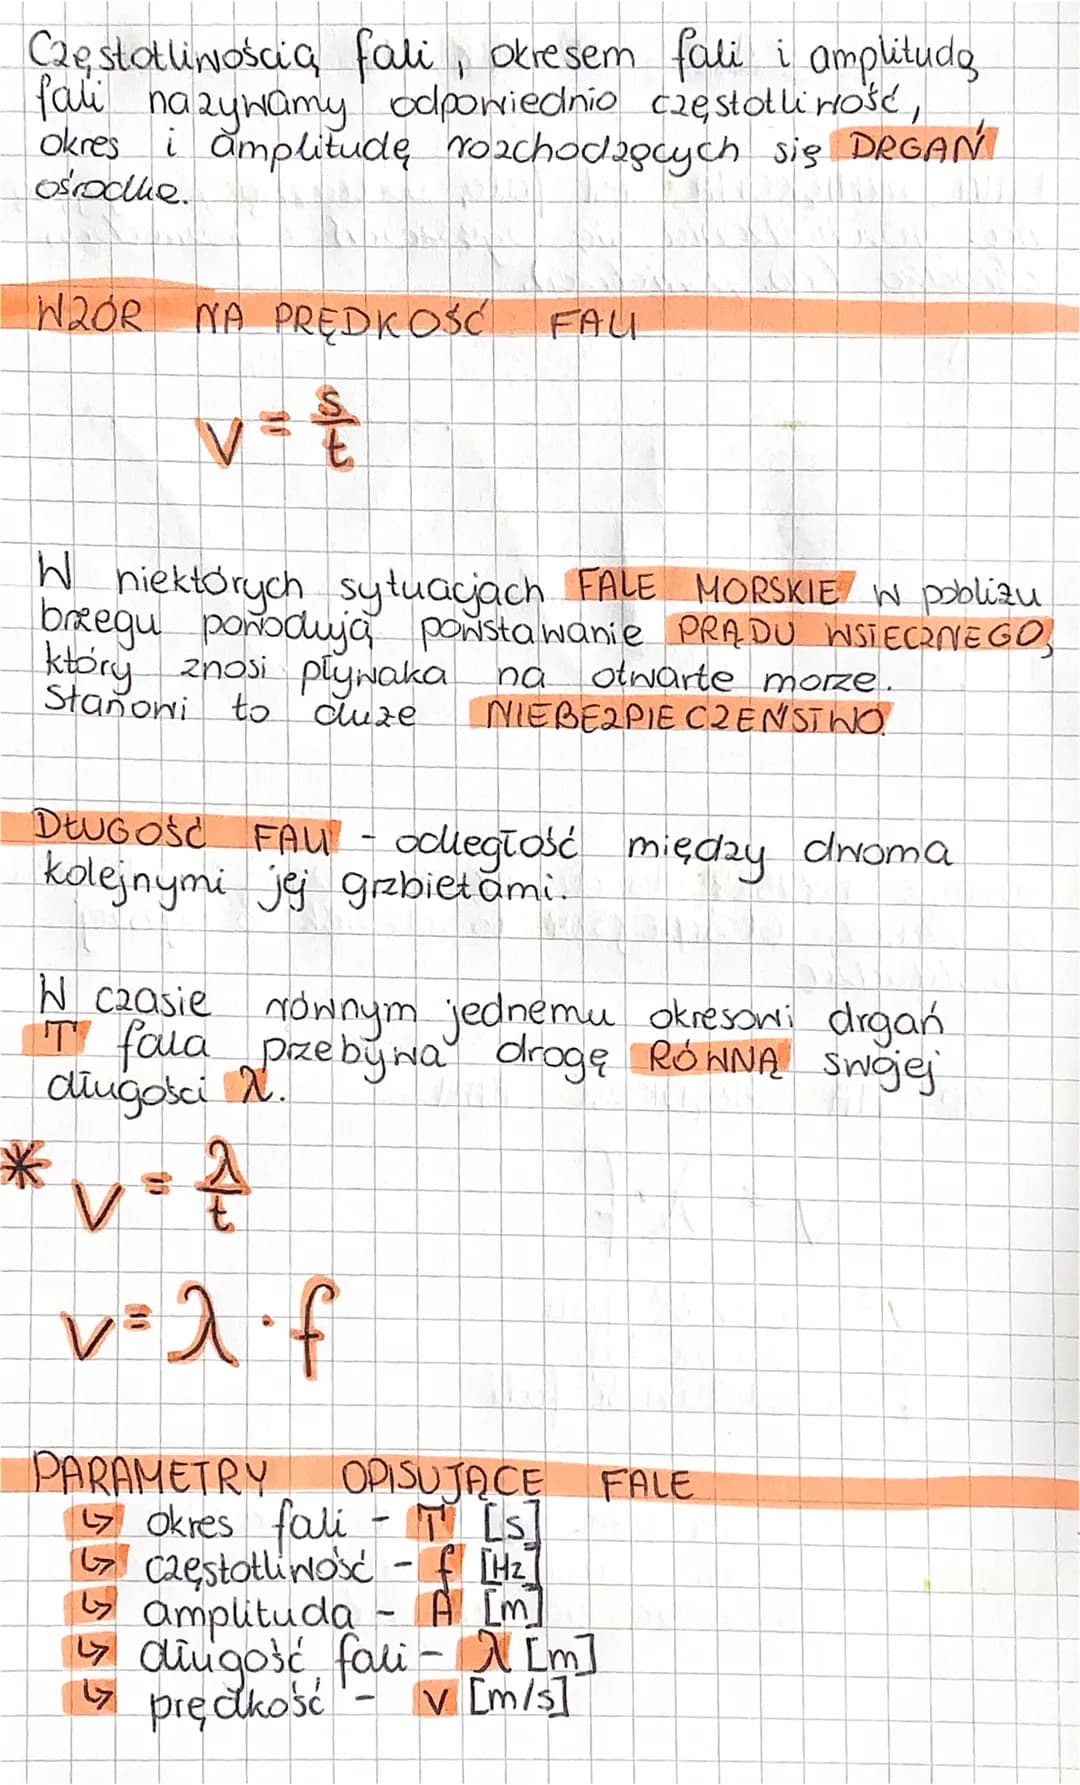 Częstotliwością fali, okresem fali i amplitudą
fali nazywamy odpowiednio częstotliwość,
okres i amplitudę rozchodzących się DRGAŃ
ośrodka.
WZÓR NA PRĘDKOŚĆ FALI
v = s/t
W niektórych sytuacjach FALE MORSKIE w pobliżu
brzegu powodują powstawanie PRĄDU WSTECZNEGO,
który znosi pływaka na otwarte morze.
Stanowi to duże NIEBEZPIECZEŃSTWO.
DŁUGOŚĆ FALI - odległość między dwoma
kolejnymi jej grzbietami.
W czasie równym jednemu okresowi drgań
T fala przebywa drogę RÓWNĄ swojej
długości λ.
* v = λ/t
v = λ · f
PARAMETRY OPISUJĄCE FALE
↳ okres fali - T [s]
↳ częstotliwość - f [Hz]
↳ amplituda - A [m]
↳ długość fali - λ [m]
↳ prędkość - v [m/s]